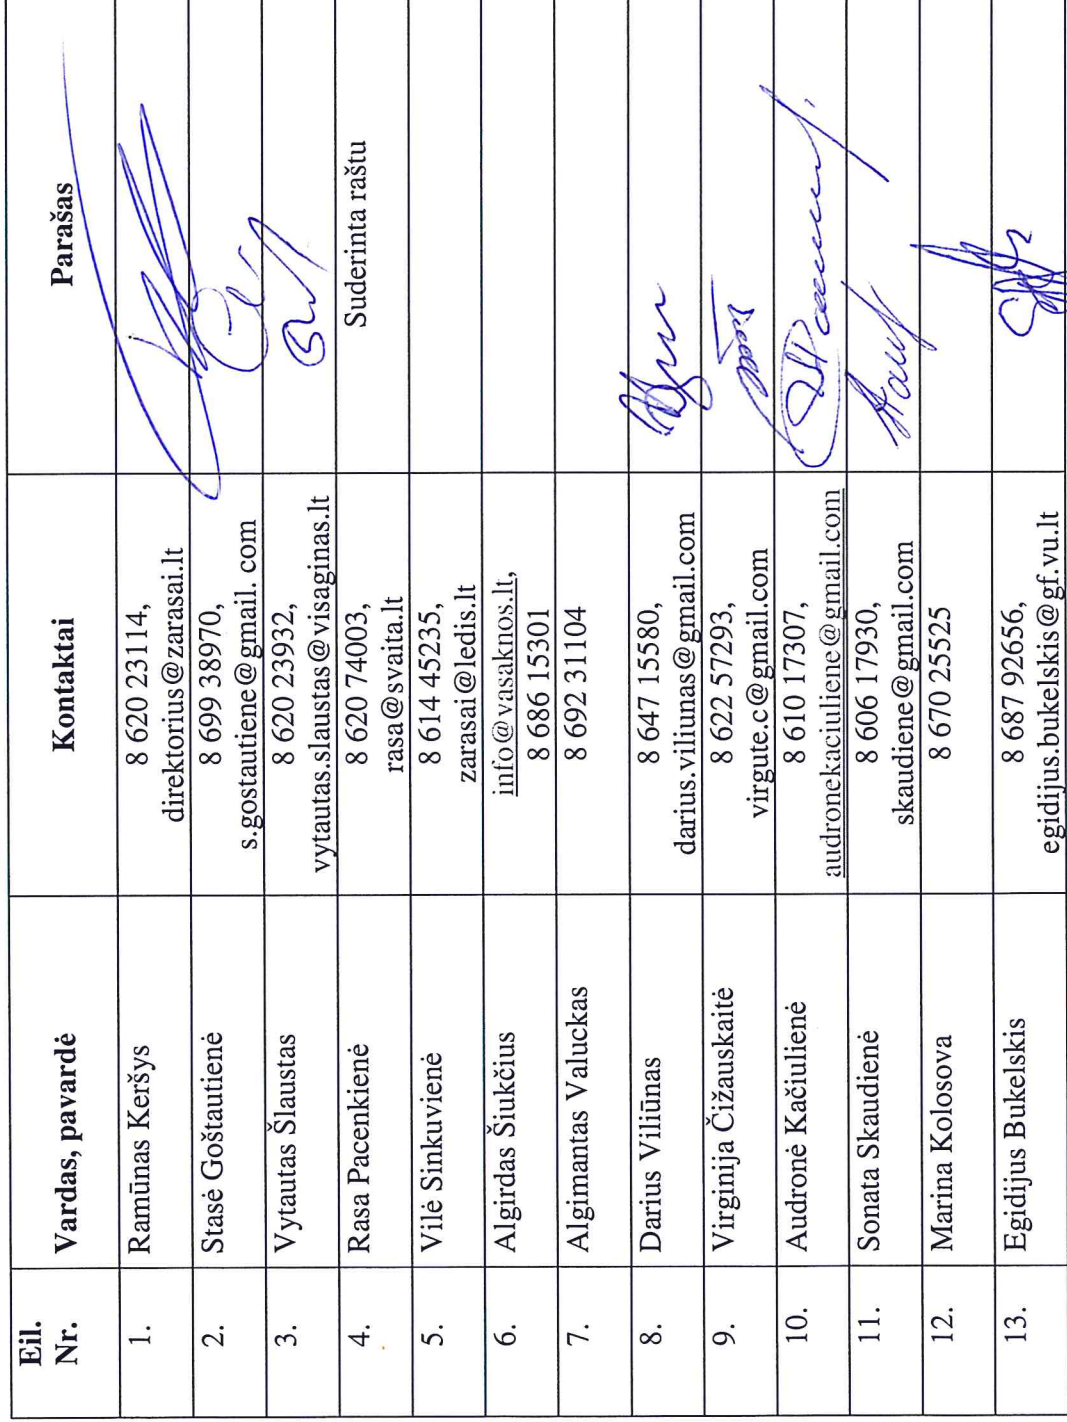 Eil. Nr. Vardas, pavardė Kontaktai Parašas
1. Ramūnas Keršys 8 620 23114,
direktorius@zarasai.lt
2. Stasė Goštautienė 8 699 38970,
s.gostautiene@gmail. com
3. Vytautas Šlaustas 8 620 23932,
vytautas.slaustas@visaginas.lt
4. Rasa Pacenkienė 8 620 74003, Suderinta raštu
rasa@svaita.lt
5. Vilė Sinkuvienė 8 614 45235,
zarasai@ledis.lt
6. Algirdas Šiukčius info@vasaknos.lt,
8 686 15301
7. Algimantas Valuckas 8 692 31104
8. Darius Viliūnas 8 647 15580,
darius.viliunas@gmail.com
9. Virginija Čižauskaitė 8 622 57293,
virgute.c@gmail.com
10. Audronė Kačiulienė 8 610 17307,
audronekaciuliene@gmail.com
11. Sonata Skaudienė 8 606 17930,
skaudiene@gmail.com
12. Marina Kolosova 8 670 25525
13. Egidijus Bukelskis 8 687 92656,
egidijus.bukelskis@gf.vu.lt